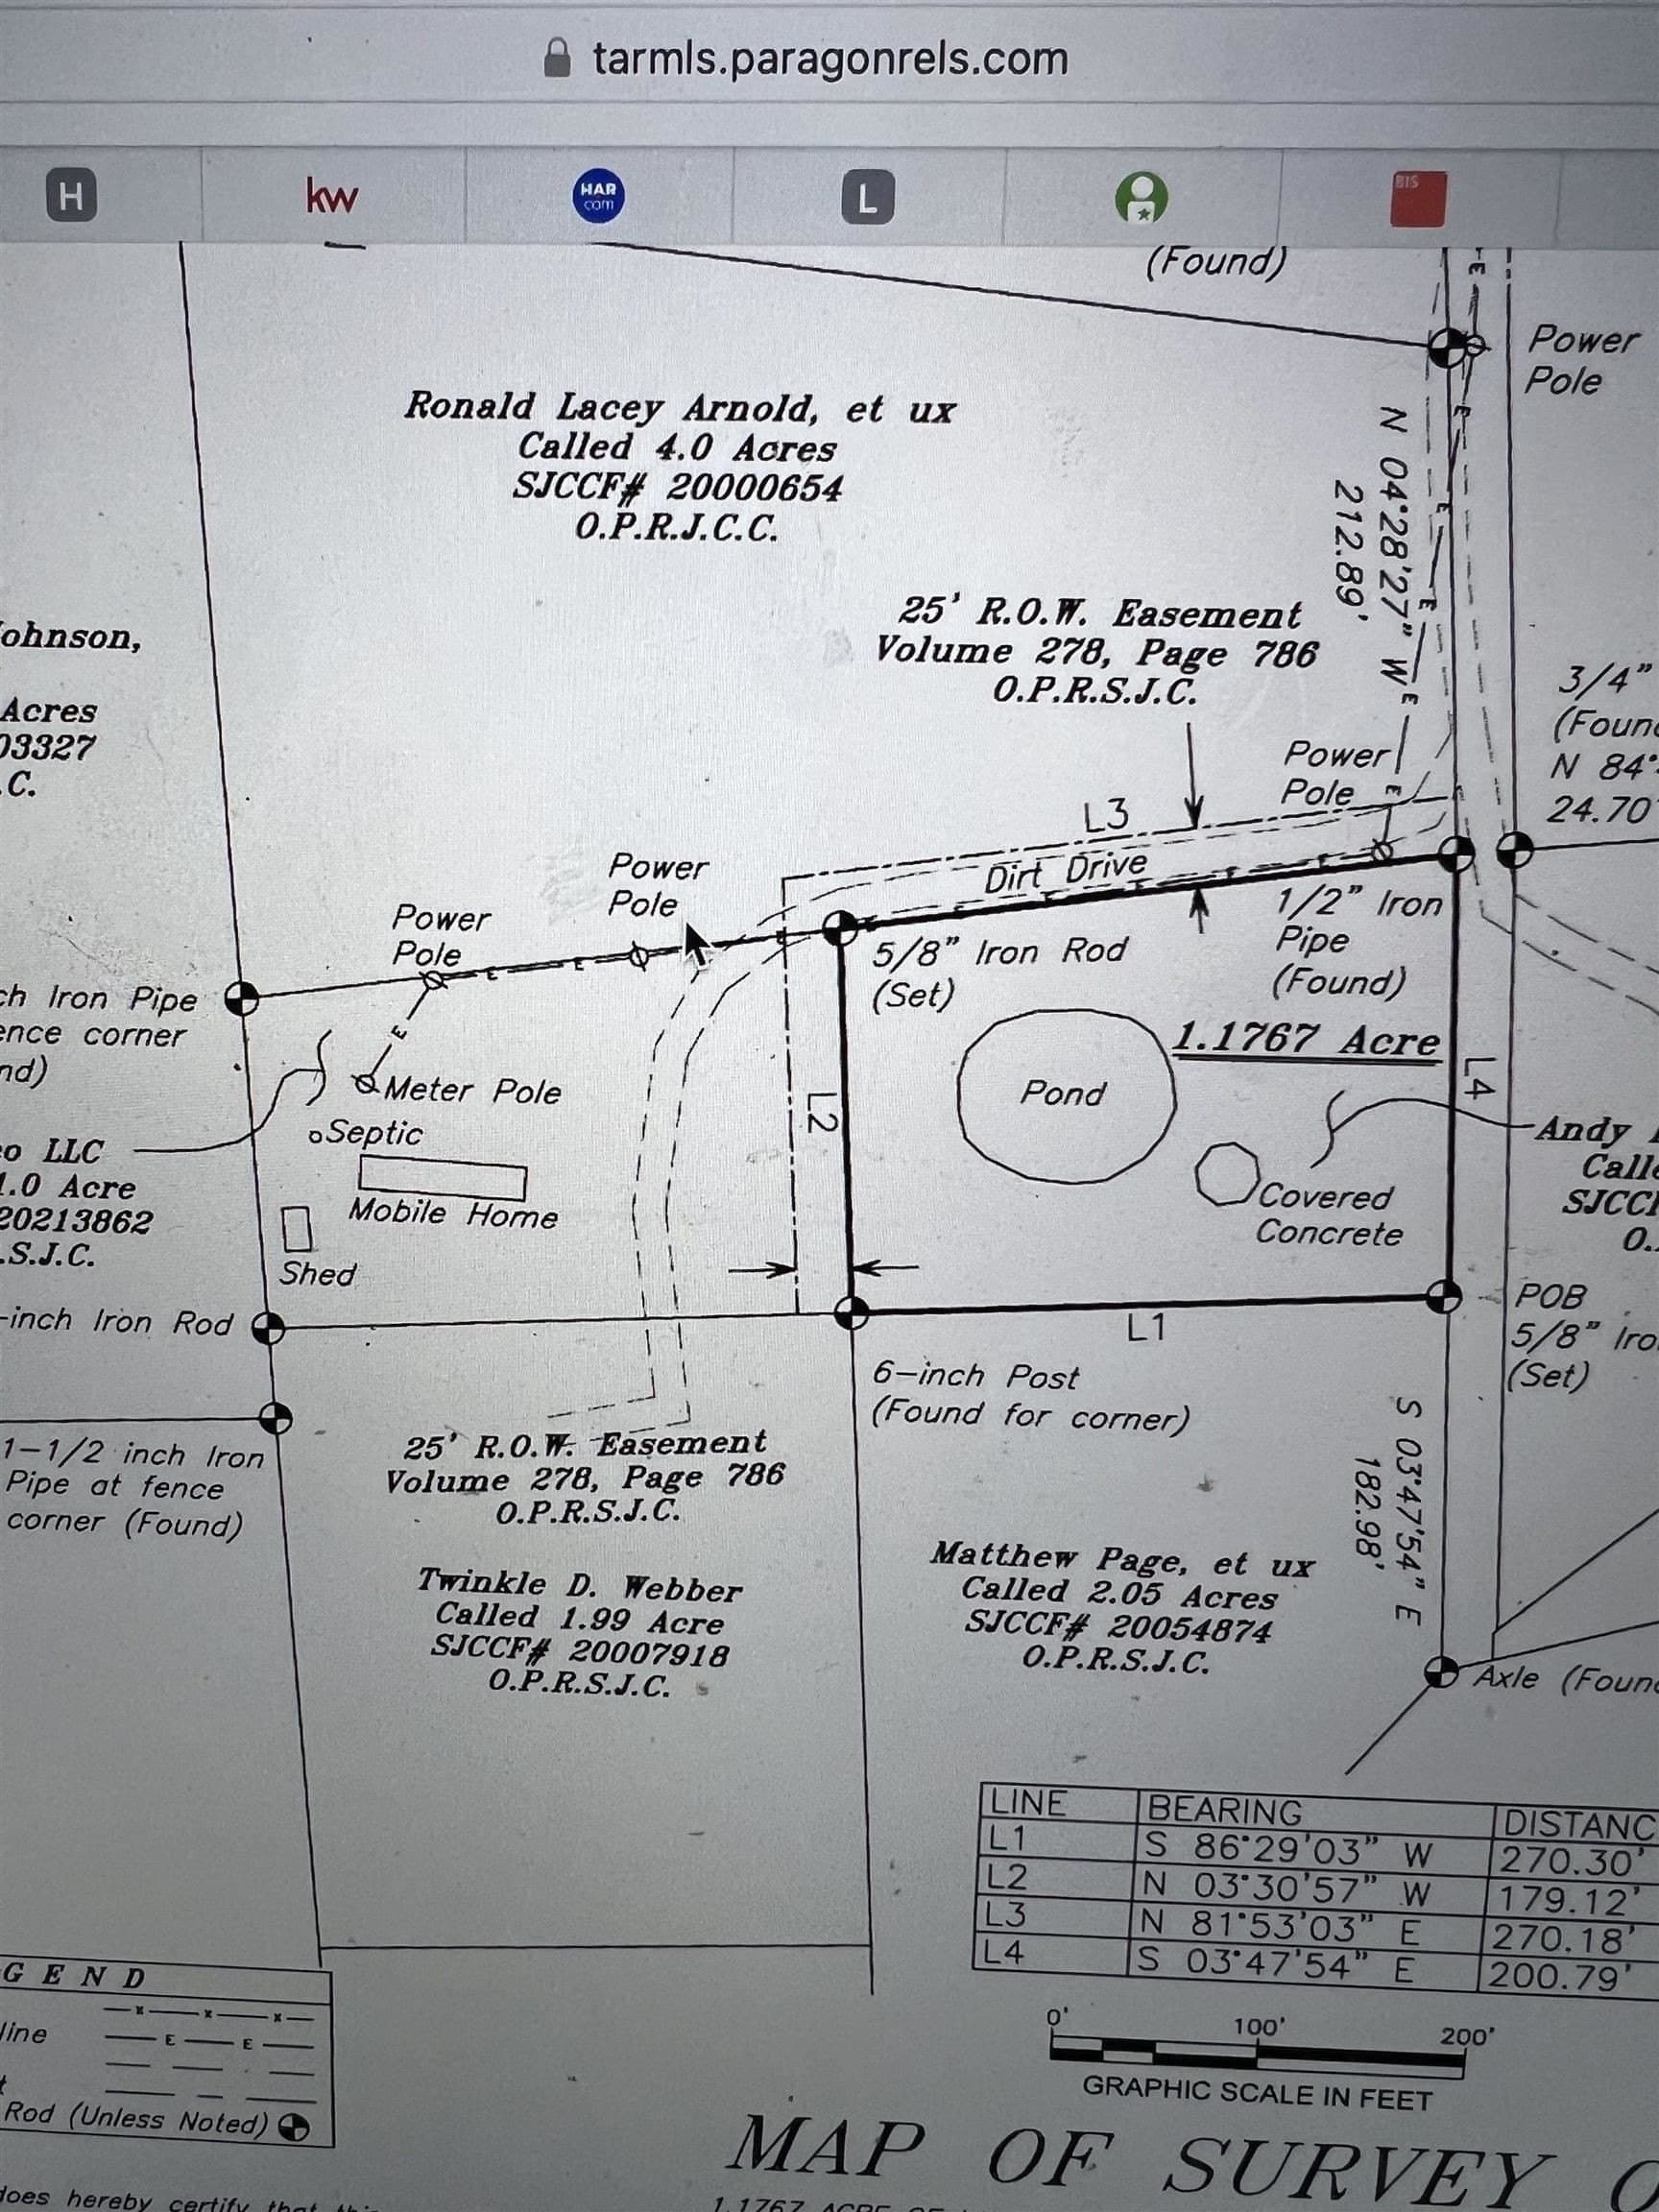 tarmls.paragonrels.com
H
kw
HAR
com
L
BIS
(Found)
E
Power
Pole
Ronald Lacey Arnold, et ux
Called 4.0 Acres
SJCCF# 20000654
O.P.R.J.C.C.
N 04°28'27" W
212.89'
E
E
E
E
25' R.O.W. Easement
Volume 278, Page 786
O.P.R.S.J.C.
Johnson,
Acres
03327
.C.
3/4"
(Foun
N 84°
24.70
Power
Pole
E
L3
Dirt Drive
Power
Pole
Power
Pole
E
E
1/2" Iron
Pipe
(Found)
5/8" Iron Rod
(Set)
ch Iron Pipe
ence corner
nd)
E
Meter Pole
Septic
Mobile Home
Shed
L2
1.1767 Acre
L4
Pond
Covered
Concrete
Andy
Calle
SJCC
O.
o LLC
1.0 Acre
20213862
.S.J.C.
-inch Iron Rod
POB
5/8" Iro
(Set)
L1
6-inch Post
(Found for corner)
S 03°47'54" E
182.98'
1-1/2 inch Iron
Pipe at fence
corner (Found)
25' R.O.W. Easement
Volume 278, Page 786
O.P.R.S.J.C.
Twinkle D. Webber
Called 1.99 Acre
SJCCF# 20007918
O.P.R.S.J.C.
Matthew Page, et ux
Called 2.05 Acres
SJCCF# 20054874
O.P.R.S.J.C.
Axle (Foun
LINE BEARING DISTANC
L1 S 86°29'03" W 270.30'
L2 N 03°30'57" W 179.12'
L3 N 81°53'03" E 270.18'
L4 S 03°47'54" E 200.79'
0' 100' 200'
GRAPHIC SCALE IN FEET
GEND
x x x
line E E
t
Rod (Unless Noted)
MAP OF SURVEY O
does hereby certify that this
1.1767 ACRE